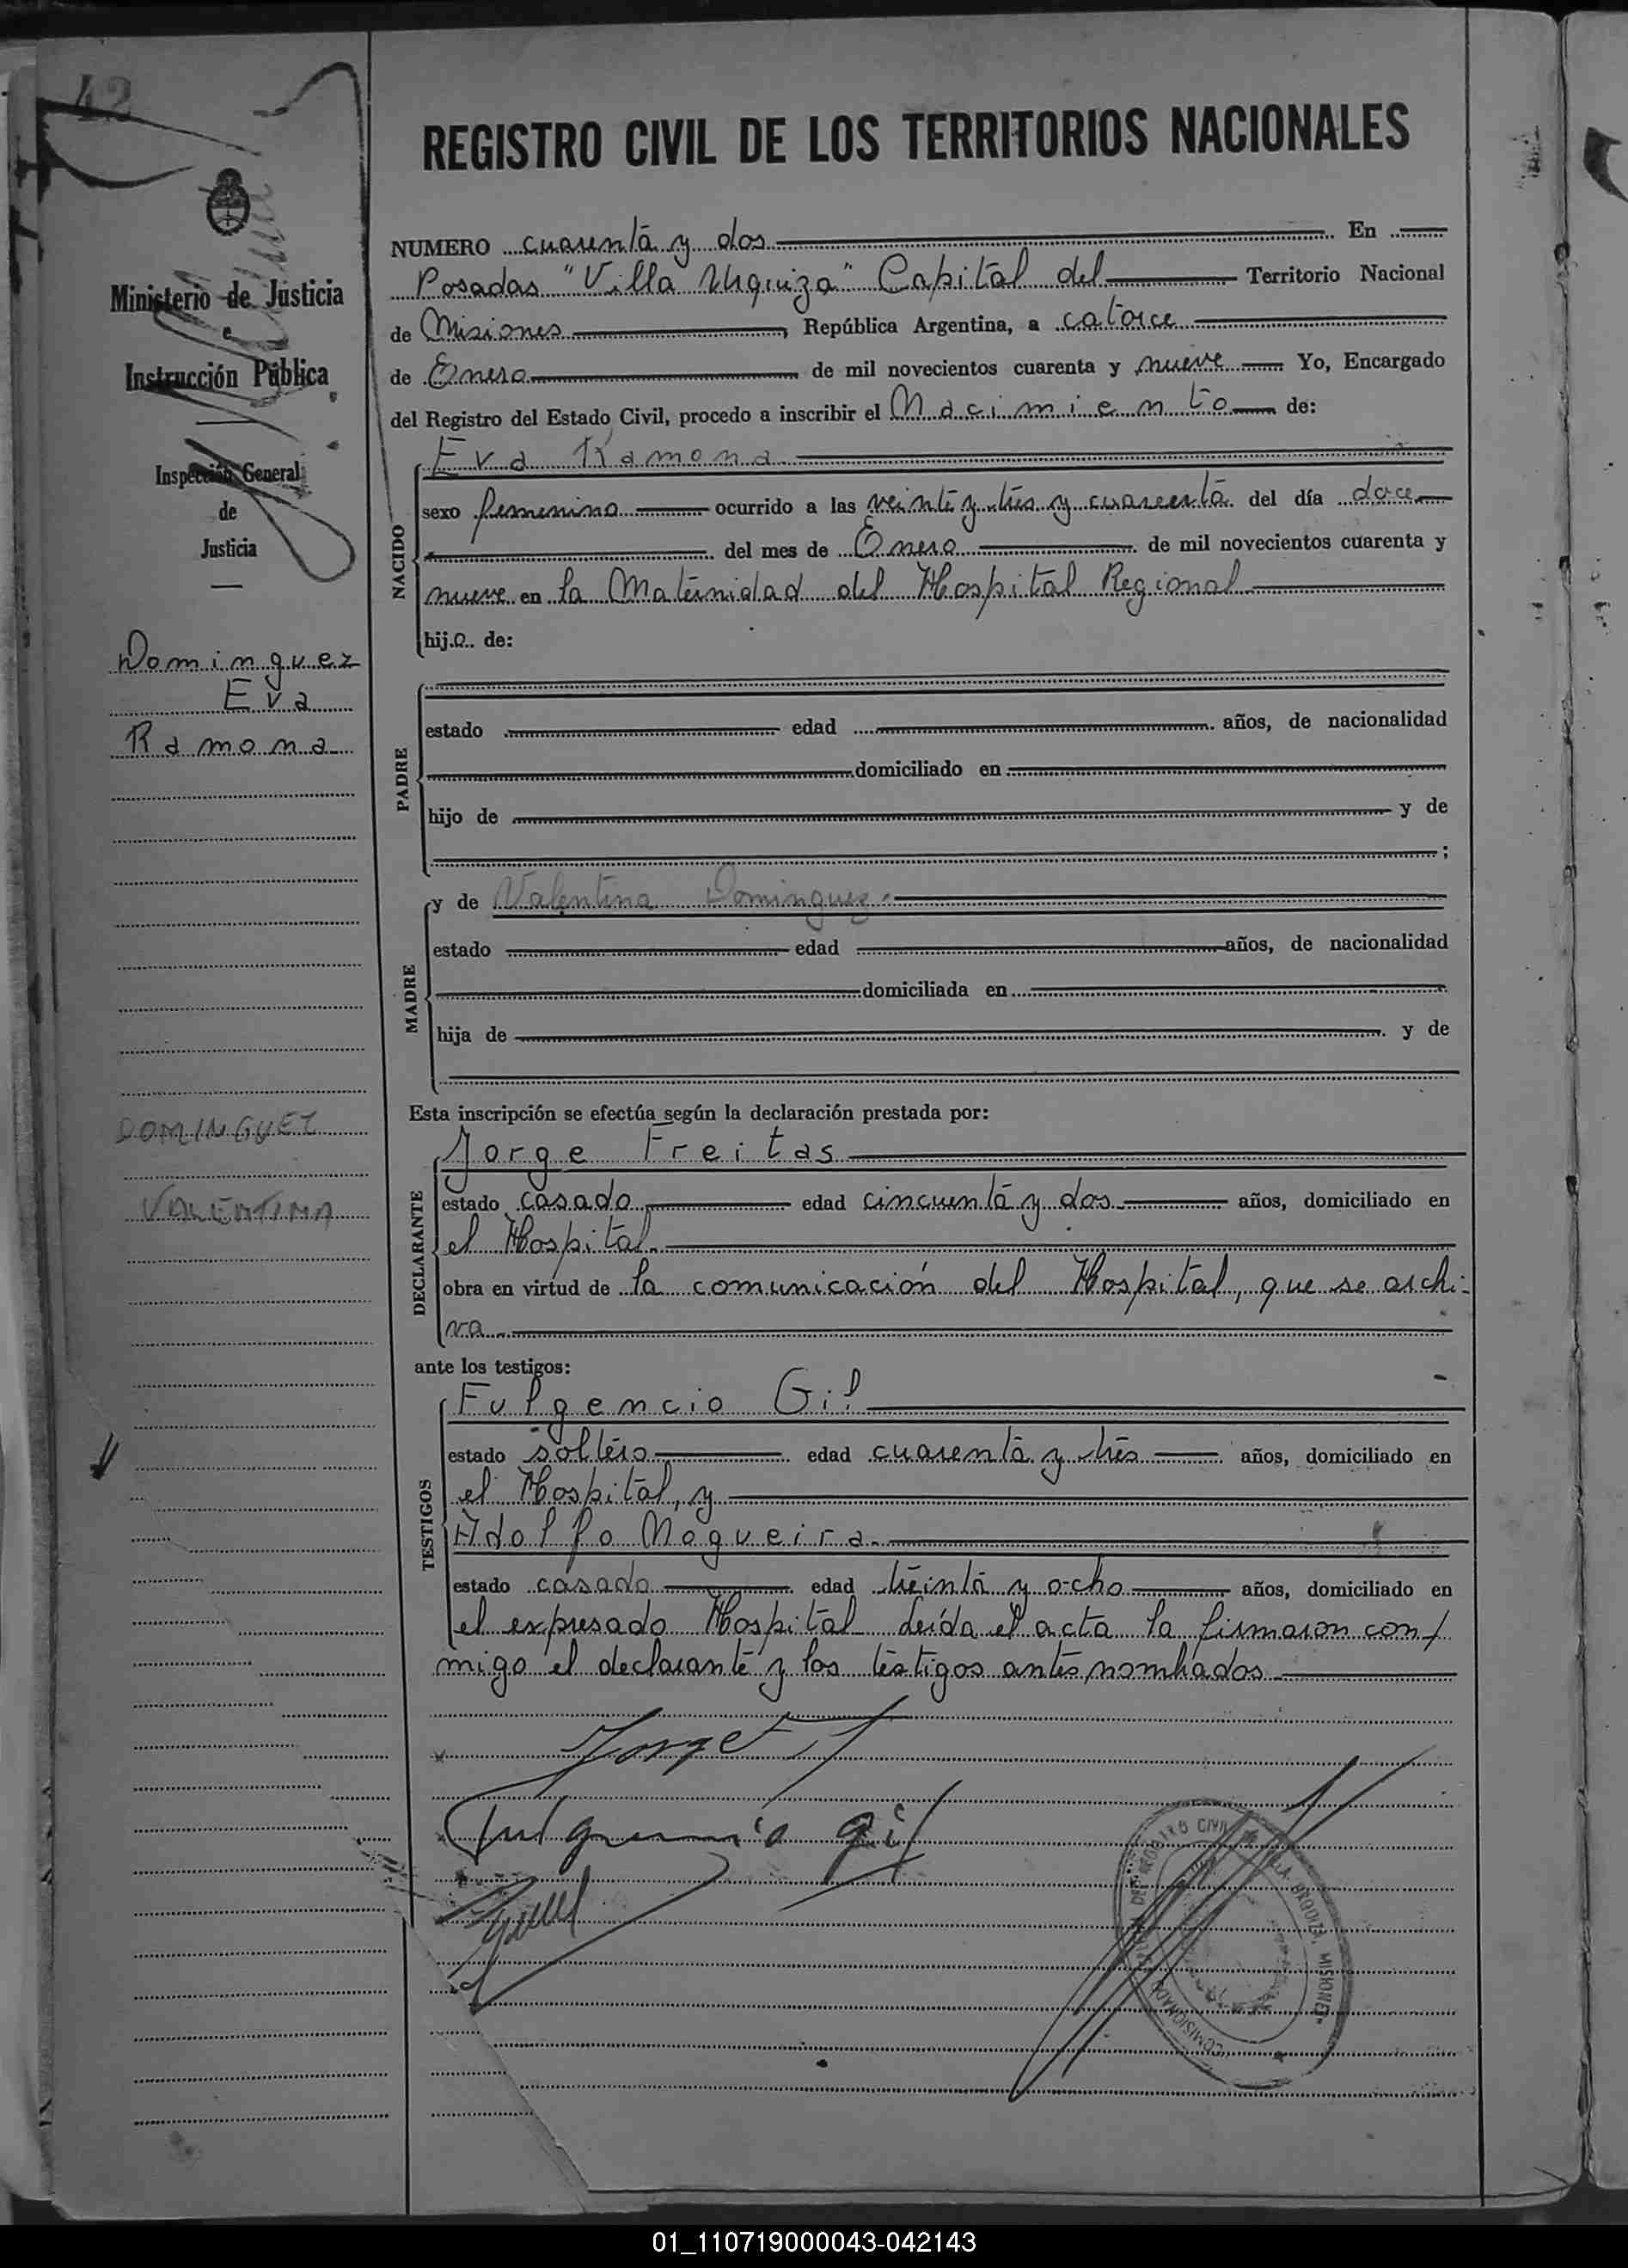 42
REGISTRO CIVIL DE LOS TERRITORIOS NACIONALES
Ministerio de Justicia
e
Instrucción Pública
Inspección General
de
Justicia
Dominguez
Eva
Ramona
DOMINGUEZ
VALENTINA
NUMERO cuarenta y dos En
Posadas "Villa Urquiza" Capital del Territorio Nacional
de Misiones, República Argentina, a catorce
de Enero de mil novecientos cuarenta y nueve Yo, Encargado
del Registro del Estado Civil, procedo a inscribir el Nacimiento de:
NACIDO
Eva Ramona
sexo femenino ocurrido a las veinte y tres y cuarenta del día doce
del mes de Enero de mil novecientos cuarenta y
nueve en la Maternidad del Hospital Regional
hija de:
PADRE
estado edad años, de nacionalidad
domiciliado en
hijo de y de
;
MADRE
y de Valentina Dominguez
estado edad años, de nacionalidad
domiciliada en
hija de y de
Esta inscripción se efectúa según la declaración prestada por:
DECLARANTE
Jorge Freitas
estado casado edad cincuenta y dos años, domiciliado en
el Hospital.
obra en virtud de la comunicación del Hospital, que se archi-
va
ante los testigos:
TESTIGOS
Fulgencio Gil
estado soltero edad cuarenta y tres años, domiciliado en
el Hospital, y
Adolfo Nogueira.
estado casado edad treinta y ocho años, domiciliado en
el expresado Hospital leída el acta la firmaron con/
migo el declarante y los testigos antes nombrados
Jorge F
Fulgencio Gil
REGISTRO CIVIL VILLA URQUIZA, MISIONES
COMISIONADO
01_110719000043-042143